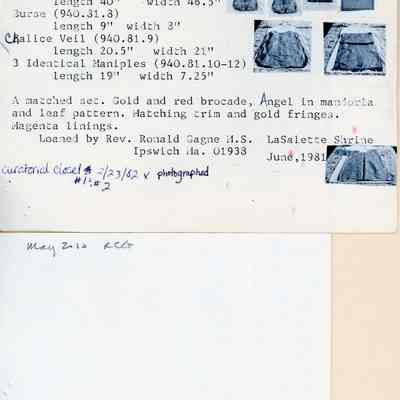 length 40"   width 46.5"
Burse (940.81.8)
length 9"  width 8"
Chalice Veil (940.81.9)
length 20.5"  width 21"
3 Identical Maniples (940.81.10-12)
length 19"  width 7.25"
A matched set. Gold and red brocade, Angel in mandorla
and leaf pattern. Matching trim and gold fringes.
Magenta linings.
Loaned by Rev. Ronald Gagne M.S.  LaSalette Shrine
Ipswich Ma. 01938  June,1981
Curatorial Closet 2/23/82 x photographed
#1, #2
May 2010